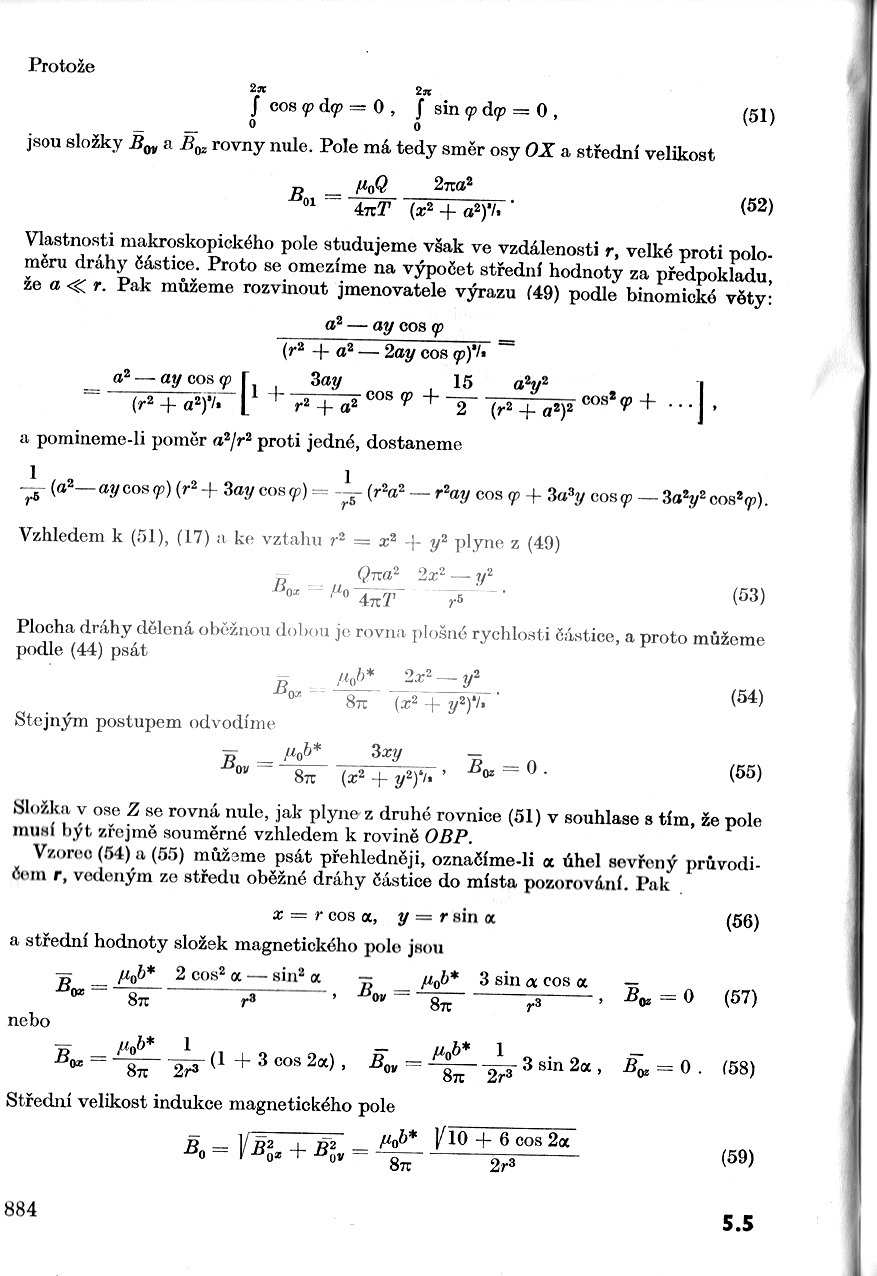 Protože
2π ∫ 0 cos φ dφ = 0 , 2π ∫ 0 sin φ dφ = 0 , (51)
jsou složky B̄₀ᵧ a B̄₀z rovny nule. Pole má tedy směr osy OX a střední velikost
B₀₁ = μ₀Q / 4πT · 2πa² / (x² + a²)^³/₂ . (52)
Vlastnosti makroskopického pole studujeme však ve vzdálenosti r, velké proti polo-
měru dráhy částice. Proto se omezíme na výpočet střední hodnoty za předpokladu,
že a ≪ r. Pak můžeme rozvinout jmenovatele výrazu (49) podle binomické věty:
a² — ay cos φ / (r² + a² — 2ay cos φ)^³/₂ =
= a² — ay cos φ / (r² + a²)^³/₂ [1 + 3ay / r² + a² cos φ + 15 / 2 a²y² / (r² + a²)² cos² φ + ...] ,
a pomineme-li poměr a²/r² proti jedné, dostaneme
1 / r⁵ (a²—ay cos φ) (r² + 3ay cos φ) = 1 / r⁵ (r²a² — r²ay cos φ + 3a³y cos φ — 3a²y² cos²φ).
Vzhledem k (51), (17) a ke vztahu r² = x² + y² plyne z (49)
B̄₀ₓ = μ₀ Qπa² / 4πT 2x² — y² / r⁵ . (53)
Plocha dráhy dělená oběžnou dobou je rovna plošné rychlosti částice, a proto můžeme
podle (44) psát
B̄₀ₓ = μ₀b* / 8π 2x² — y² / (x² + y²)^⁵/₂ . (54)
Stejným postupem odvodíme
B̄₀ᵧ = μ₀b* / 8π 3xy / (x² + y²)^⁵/₂ , B̄₀z = 0 . (55)
Složka v ose Z se rovná nule, jak plyne z druhé rovnice (51) v souhlase s tím, že pole
musí být zřejmě souměrné vzhledem k rovině OBP.
Vzorec (54) a (55) můžeme psát přehledněji, označíme-li α úhel sevřený průvodi-
čem r, vedeným ze středu oběžné dráhy částice do místa pozorování. Pak
x = r cos α, y = r sin α (56)
a střední hodnoty složek magnetického pole jsou
B̄₀ₓ = μ₀b* / 8π 2 cos² α — sin² α / r³ , B̄₀ᵧ = μ₀b* / 8π 3 sin α cos α / r³ , B̄₀z = 0 (57)
nebo
B̄₀ₓ = μ₀b* / 8π 1 / 2r³ (1 + 3 cos 2α) , B̄₀ᵧ = μ₀b* / 8π 1 / 2r³ 3 sin 2α , B̄₀z = 0 . (58)
Střední velikost indukce magnetického pole
B̄₀ = √(B̄²₀ₓ + B̄²₀ᵧ) = μ₀b* / 8π √(10 + 6 cos 2α) / 2r³ (59)
884
5.5